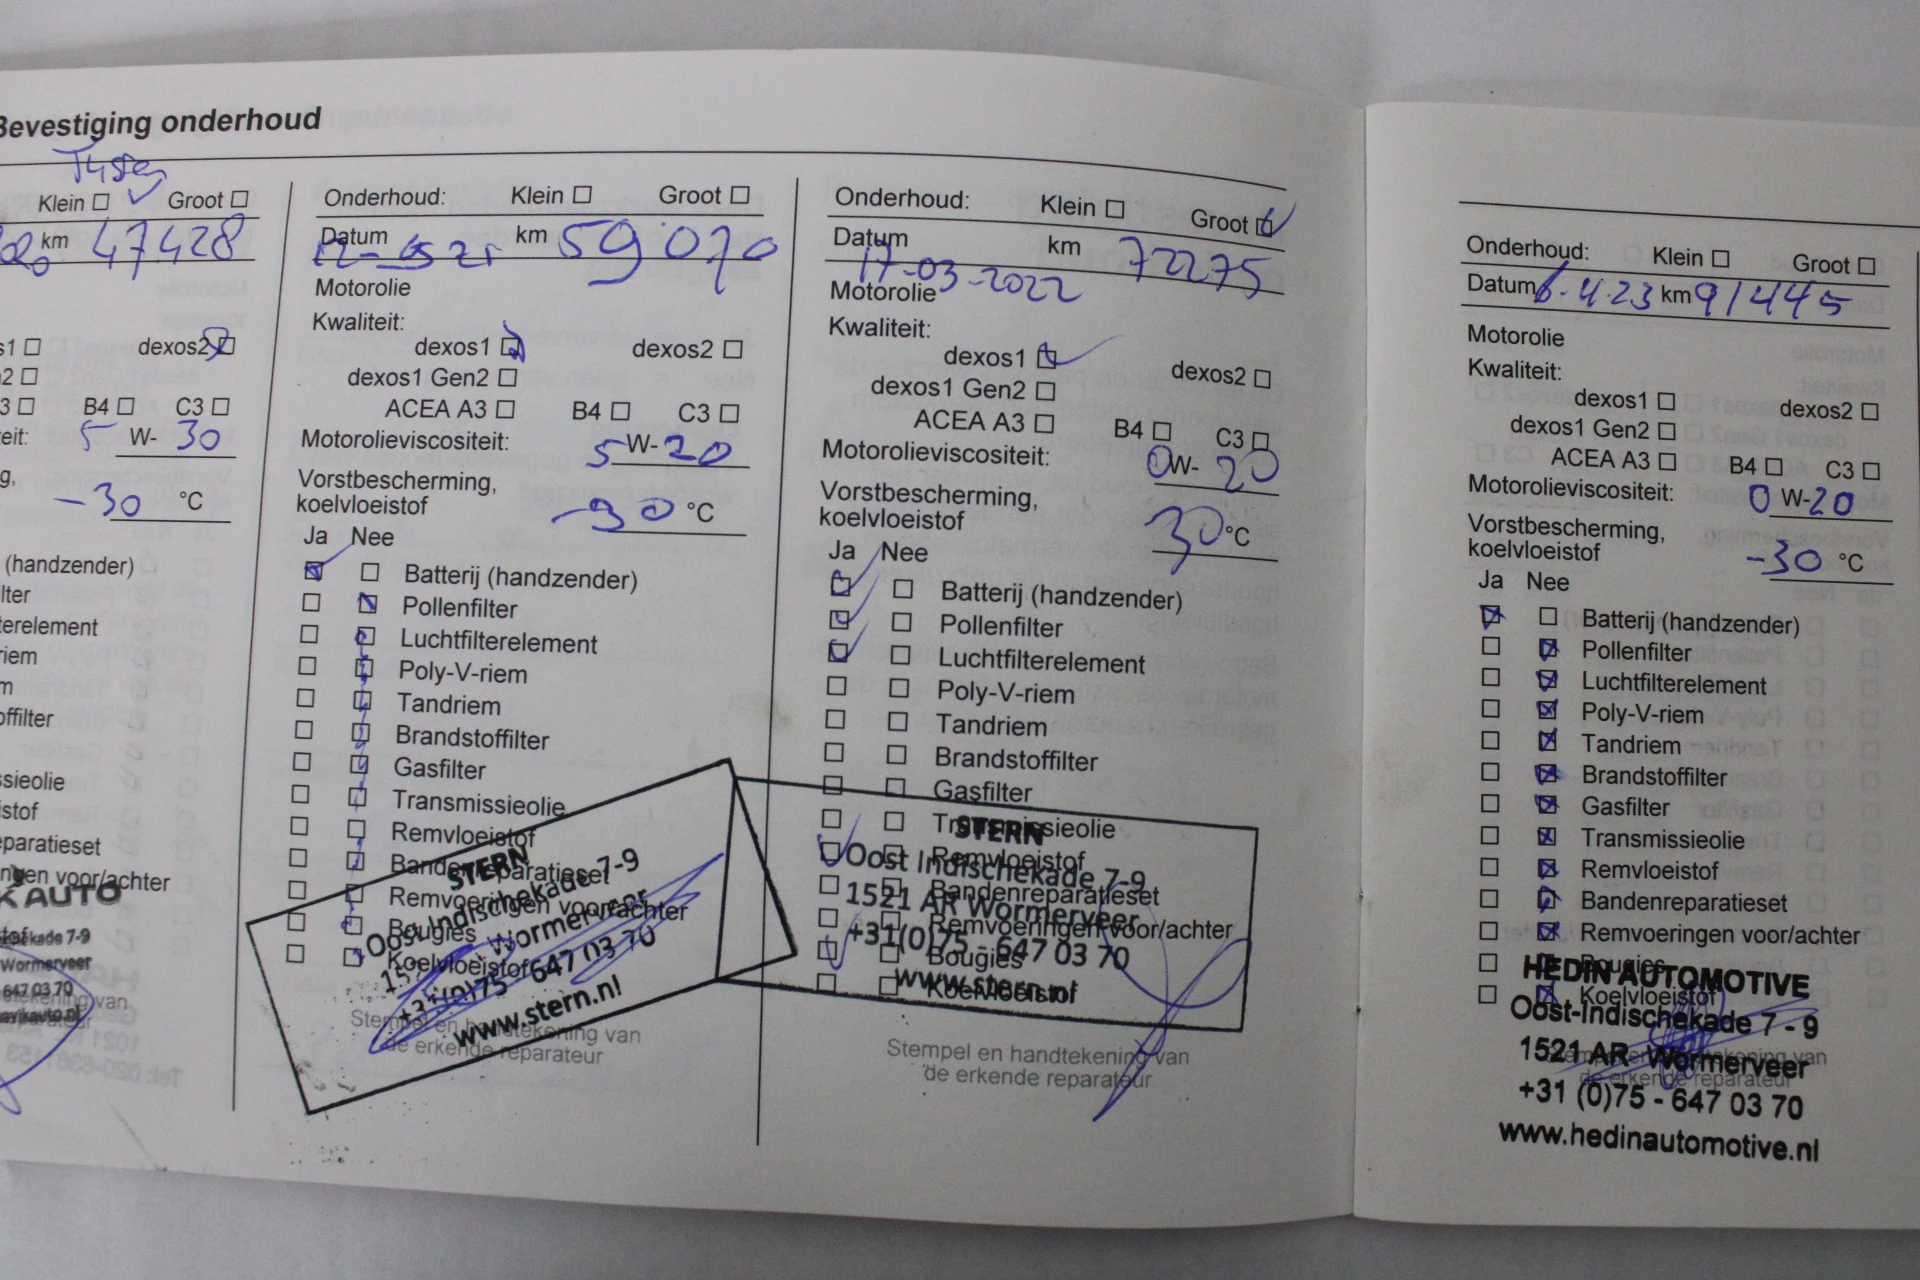 Bevestiging onderhoud
Tussen
Klein Groot
km 47428
dexos2
B4 C3
5 W- 30
-30 °C
(handzender)
KAUTO
Wormerveer
647 03 70
Onderhoud: Klein Groot
Datum km 59070
Motorolie
Kwaliteit:
dexos1 dexos2
dexos1 Gen2
ACEA A3 B4 C3
Motorolieviscositeit: 5 W- 20
Vorstbescherming,
koelvloeistof -30 °C
Ja Nee
Batterij (handzender)
Pollenfilter
Luchtfilterelement
Poly-V-riem
Tandriem
Brandstoffilter
Gasfilter
Transmissieolie
Remvloeistof
Bandenreparatieset
Remvoeringen voor/achter
Bougies
Koelvloeistof
STERN
Oost Indischekade 7-9
Wormerveer
+31(0)75 647 03 70
www.stern.nl
Stempel en handtekening van
de erkende reparateur
Onderhoud: Klein Groot
Datum 17-03-2022 km 72275
Motorolie
Kwaliteit:
dexos1 dexos2
dexos1 Gen2
ACEA A3 B4 C3
Motorolieviscositeit: 0 W- 20
Vorstbescherming,
koelvloeistof 30 °C
Ja Nee
Batterij (handzender)
Pollenfilter
Luchtfilterelement
Poly-V-riem
Tandriem
Brandstoffilter
Gasfilter
Transmissieolie
Remvloeistof
Bandenreparatieset
Remvoeringen voor/achter
Bougies
Koelvloeistof
STERN
Oost Indischekade 7-9
1521 AR Wormerveer
+31(0)75 647 03 70
www.stern.nl
Stempel en handtekening van
de erkende reparateur
Onderhoud: Klein Groot
Datum 6.4.23 km 91445
Motorolie
Kwaliteit:
dexos1 dexos2
dexos1 Gen2
ACEA A3 B4 C3
Motorolieviscositeit: 0 W-20
Vorstbescherming,
koelvloeistof -30 °C
Ja Nee
Batterij (handzender)
Pollenfilter
Luchtfilterelement
Poly-V-riem
Tandriem
Brandstoffilter
Gasfilter
Transmissieolie
Remvloeistof
Bandenreparatieset
Remvoeringen voor/achter
Bougies
Koelvloeistof
HEDIN AUTOMOTIVE
Oost-Indischekade 7 - 9
1521 AR Wormerveer
+31 (0)75 - 647 03 70
www.hedinautomotive.nl
Stempel en handtekening van
de erkende reparateur